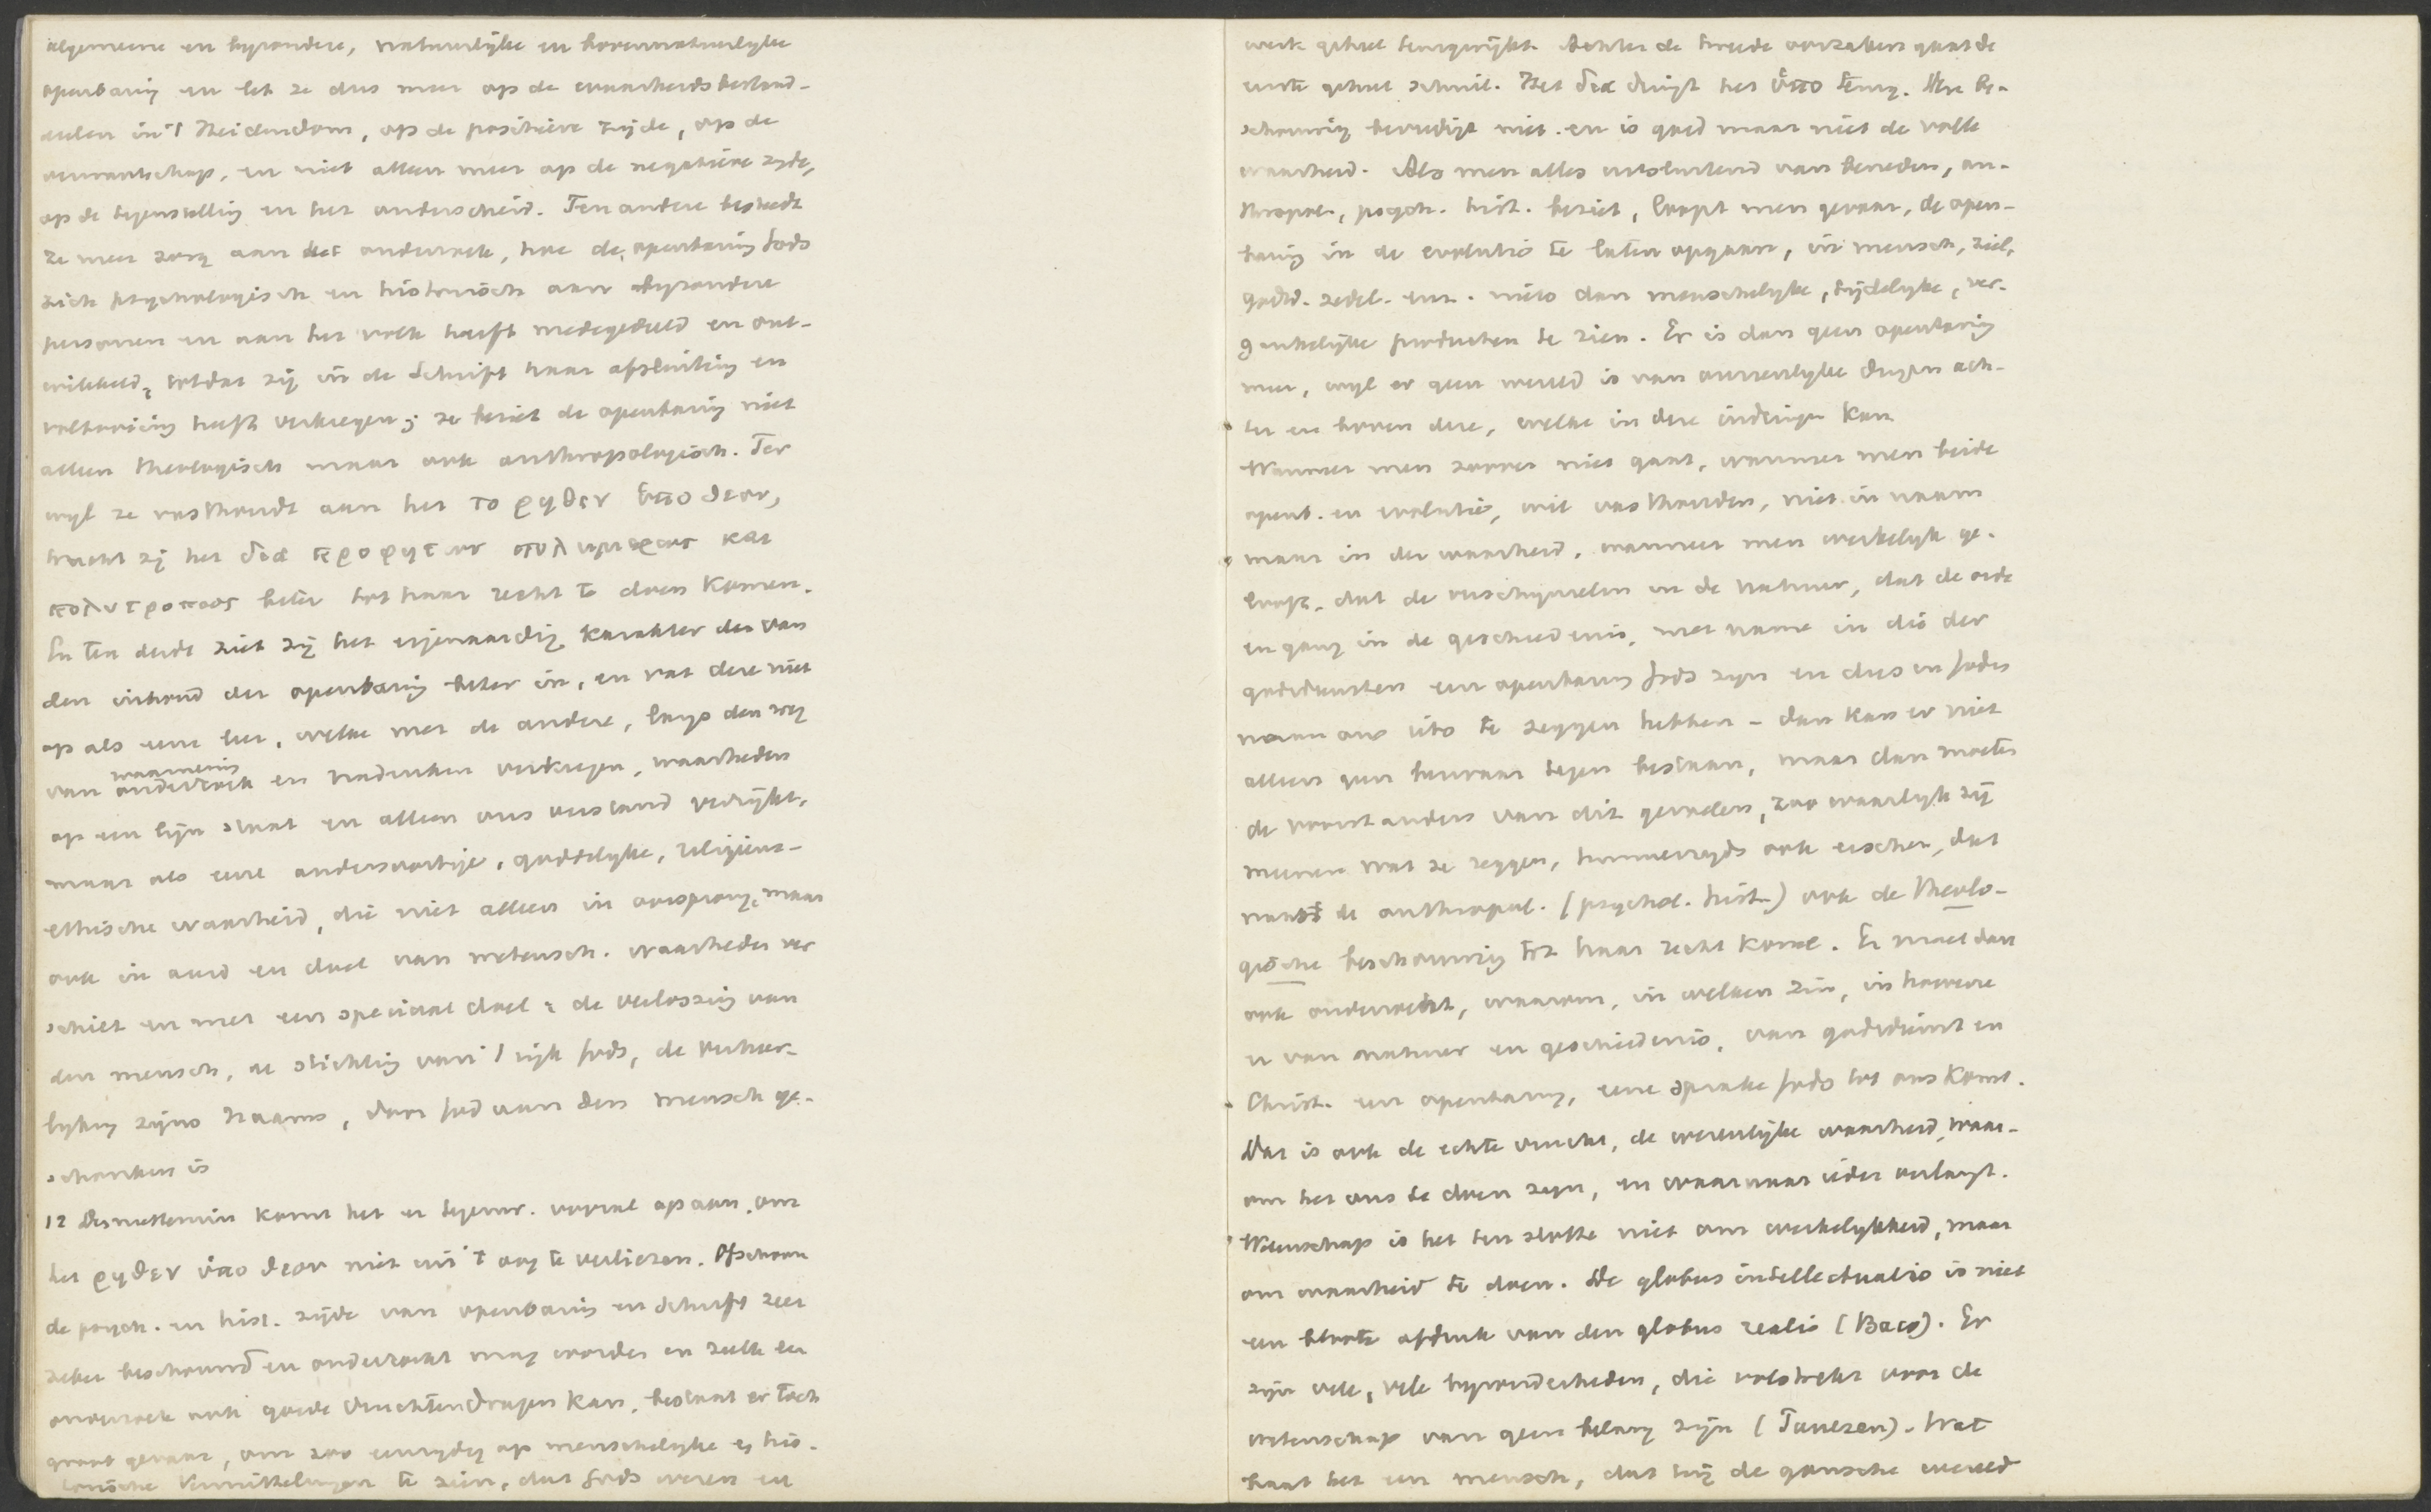 algemeene en byzondere, natuurlijke en bovennatuurlyke
openbaring en let ze dus meer op de waarheidsbestand-
deelen in 't Heidendom, op de positieve zijde, op de
verwantschap, en niet alleen meer op de negatieve zyde,
op de tegenstelling en het onderscheid. Ten andere besteedt
ze meer zorg aan het onderzoek, hoe de openbaring Gods
zich psychologisch en historisch aan byzondere
personen en aan het volk heeft medegedeeld en ont-
wikkeld, totdat zij in de Schrift haar afsluiting en
voltooiing heeft verkregen; ze beziet de openbaring niet
alleen theologisch maar ook anthropologisch. Ter
wyl ze vasthoudt aan het το ρηθεν ὑπο θεου,
tracht zij het δια προφητων πολυμερως και
πολυτροπως beter tot haar recht te doen komen.
En ten derde ziet zij het eigenaardig karakter der van
den inhoud der openbaring beter in, en vat deze niet
op als eene leer, welke met de andere, langs den weg
van waarneming
onderzoek en nadenken verkregen, waarheden
op een lijn staat en alleen ons verstand verrijkt,
maar als eene andersoortige, goddelyke, religieus-
ethische waarheid, die niet alleen in oorsprong, maar
ook in aard en doel van wetensch. waarheden ver
schilt en met een speciaal doel: de verlossing van
den mensch, de stichting van 't rijk Gods, de verheer-
lyking zijns Naams, door God aan den mensch ge-
schonken is
12 Desniettemin komt het er tegenw. vooral op aan, om
het ρηθεν ὑπο θεου niet uit 't oog te verliezen. Ofschoon
de psych. en hist. zijde van openbaring en Schrift zeer
zeker beschouwd en onderzocht mag worden en zulk een
onderzoek ook goede vruchten dragen kan, bestaat er toch
groot gevaar, om zoo eenzydig op menschelyke en his-
torische bemiddelingen te zien, dat Gods wezen en
werk geheel teruggewykt. Achter de tweede oorzaken gaat de
eerste geheel schuil. Het δια dringt het ὑπο terug. Deze be-
schouwing bevredigt niet. en is goed maar niet de volle
waarheid. Als men alles uitsluitend van beneden, an-
thropol., psych. hist. beziet, loopt men gevaar, de open-
baring in de evolutie te laten opgaan, in mensch, ziel,
godsd. zedel. enz. niets dan menschelyke, tijdelyke, ver-
gankelijke producten te zien. Er is dan geen openbaring
meer, wyl er geen wereld is van onzienlyke dingen ach-
ter en boven deze, welke in deze indringen kan
Wanneer men zoover niet gaat, wanneer men beide
openb. en evolutie, wil vasthouden, niet in naam
maar in der waarheid, wanneer men werkelyk ge-
looft, dat de verschijnselen in de natuur, dat de orde
en gang in de geschiedenis, met name in die der
godsdiensten een openbaring Gods zyn en dus in Gods
naam ons iets te zeggen hebben – dan kan er niet
alleen geen bezwaar tegen bestaan, maar dan moeten
de voorstanders van dit gevoelen, zoo waarlyk zij
meenen wat ze zeggen, hunnerzyds ook eischen, dat
naast de anthropol. (psychol. hist.) ook de theolo-
gische beschouwing tot haar recht kome. Er moet dan
ook onderzocht, waarom, in welken zin, in hoeverre
er van natuur en geschiedenis, van godsdienst en
Christ. een openbaring, eene sprake Gods tot ons komt.
Dat is ook de echte vrucht, de wezenlijke waarheid, waar-
om het ons te doen zyn, en waarnaar ieder verlangt.
Wetenschap is het ten slotte niet om werkelykheid, maar
om waarheid te doen. De globus intellectualis is niet
een bloote afdruk van den globus realis (Baco). Er
zijn vele, vele byzonderheden, die volstrekt voor de
wetenschap van geen belang zijn (Paulsen). Wat
baat het een mensch, dat hij de gansche wereld